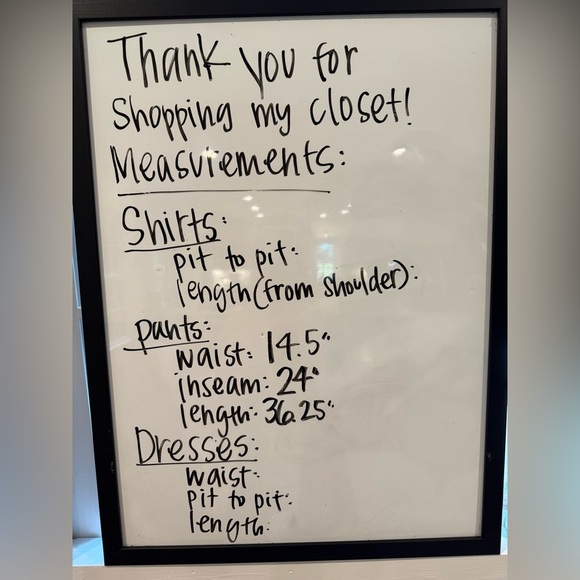 Thank you for
Shopping my closet!
Measurements:
Shirts:
pit to pit:
length (from shoulder):
pants:
waist: 14.5"
inseam: 24"
length: 36.25"
Dresses:
waist:
pit to pit:
length: